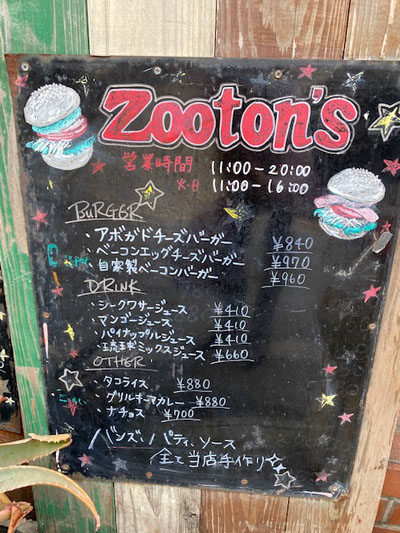 Zooton's
営業時間 11:00-20:00
火・日 11:00-16:00
BURGER
・アボガドチーズバーガー ¥840
・ベーコンエッグチーズバーガー ¥970
・自家製ベーコンバーガー ¥960
DRINK
・シークワサージュース ¥410
・マンゴージュース ¥410
・パイナップルジュース ¥410
・琉球ミックスジュース ¥660
OTHER
・タコライス ¥880
・グリルキーマカレー ¥880
・ナチョス ¥700
バンズ、パティ、ソース
全て当店手作り